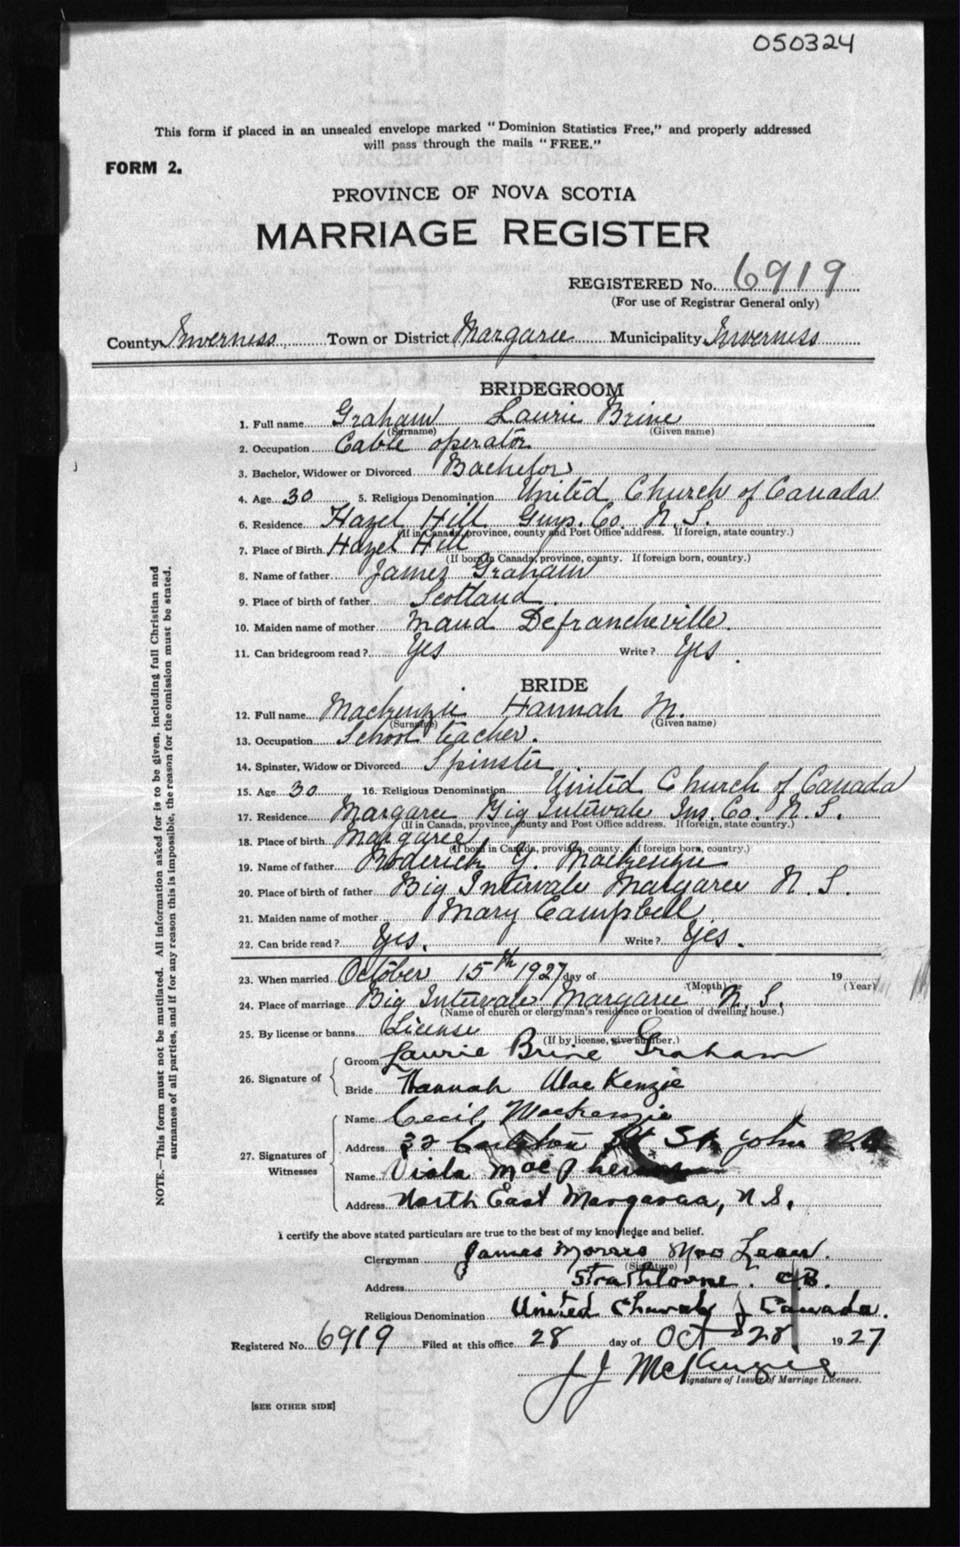 050324
This form if placed in an unsealed envelope marked "Dominion Statistics Free," and properly addressed
will pass through the mails "FREE."
FORM 2.
PROVINCE OF NOVA SCOTIA
MARRIAGE REGISTER
REGISTERED No. 6919
(For use of Registrar General only)
County Inverness Town or District Margaree Municipality Inverness
BRIDEGROOM
1. Full name Graham Laurie Brine
(Surname) (Given name)
2. Occupation Cable operator
3. Bachelor, Widower or Divorced Bachelor
4. Age 30 5. Religious Denomination United Church of Canada
6. Residence Hazel Hill Guys. Co. N. S.
(If in Canada, province, county and Post Office address. If foreign, state country.)
7. Place of Birth Hazel Hill
(If born in Canada, province, county. If foreign born, country.)
8. Name of father James Graham
9. Place of birth of father Scotland
10. Maiden name of mother Maud Defrancheville
11. Can bridegroom read? Yes Write? Yes
BRIDE
12. Full name Mackenzie Hannah M.
(Surname) (Given name)
13. Occupation School teacher.
14. Spinster, Widow or Divorced Spinster
15. Age 30 16. Religious Denomination United Church of Canada
17. Residence Margaree Big Intervale Inv. Co. N. S.
(If in Canada, province, county and Post Office address. If foreign, state country.)
18. Place of birth Margaree
(If born in Canada, province, county. If foreign born, country.)
19. Name of father Roderick Y. Mackenzie
20. Place of birth of father Big Intervale Margaree N. S.
21. Maiden name of mother Mary Campbell
22. Can bride read? Yes. Write? Yes.
23. When married October 15th 1927 day of 19
(Month) (Year)
24. Place of marriage Big Intervale Margaree N. S.
(Name of church or clergyman's residence or location of dwelling house.)
25. By license or banns License
(If by license, give number.)
26. Signature of
Groom Laurie Brine Graham
Bride Hannah MacKenzie
27. Signatures of Witnesses
Name Cecil Mackenzie
Address 32 St St John
Name Viola
Address North East Margaree, N. S.
I certify the above stated particulars are true to the best of my knowledge and belief.
Clergyman James Morris Mac Lean.
(Signature)
Address Strathlorne. C.B.
Religious Denomination United Church of Canada.
Registered No. 6919 Filed at this office 28 day of Oct 28 1927
J J McKenzie
Signature of Issuer of Marriage Licenses.
[SEE OTHER SIDE]
NOTE.—This form must not be mutilated. All information asked for is to be given, including full Christian and
surnames of all parties, and if for any reason this is impossible, the reason for the omission must be stated.